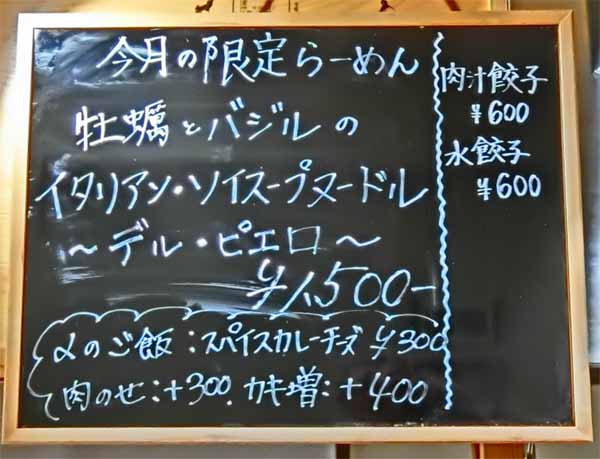 今月の限定らーめん
牡蠣とバジルの
イタリアン・ソイスープヌードル
～デル・ピエロ～
¥1,500-
〆のご飯：スパイスカレーチーズ ¥300
肉のせ：+300. カキ増：+400
肉汁餃子
¥600
水餃子
¥600